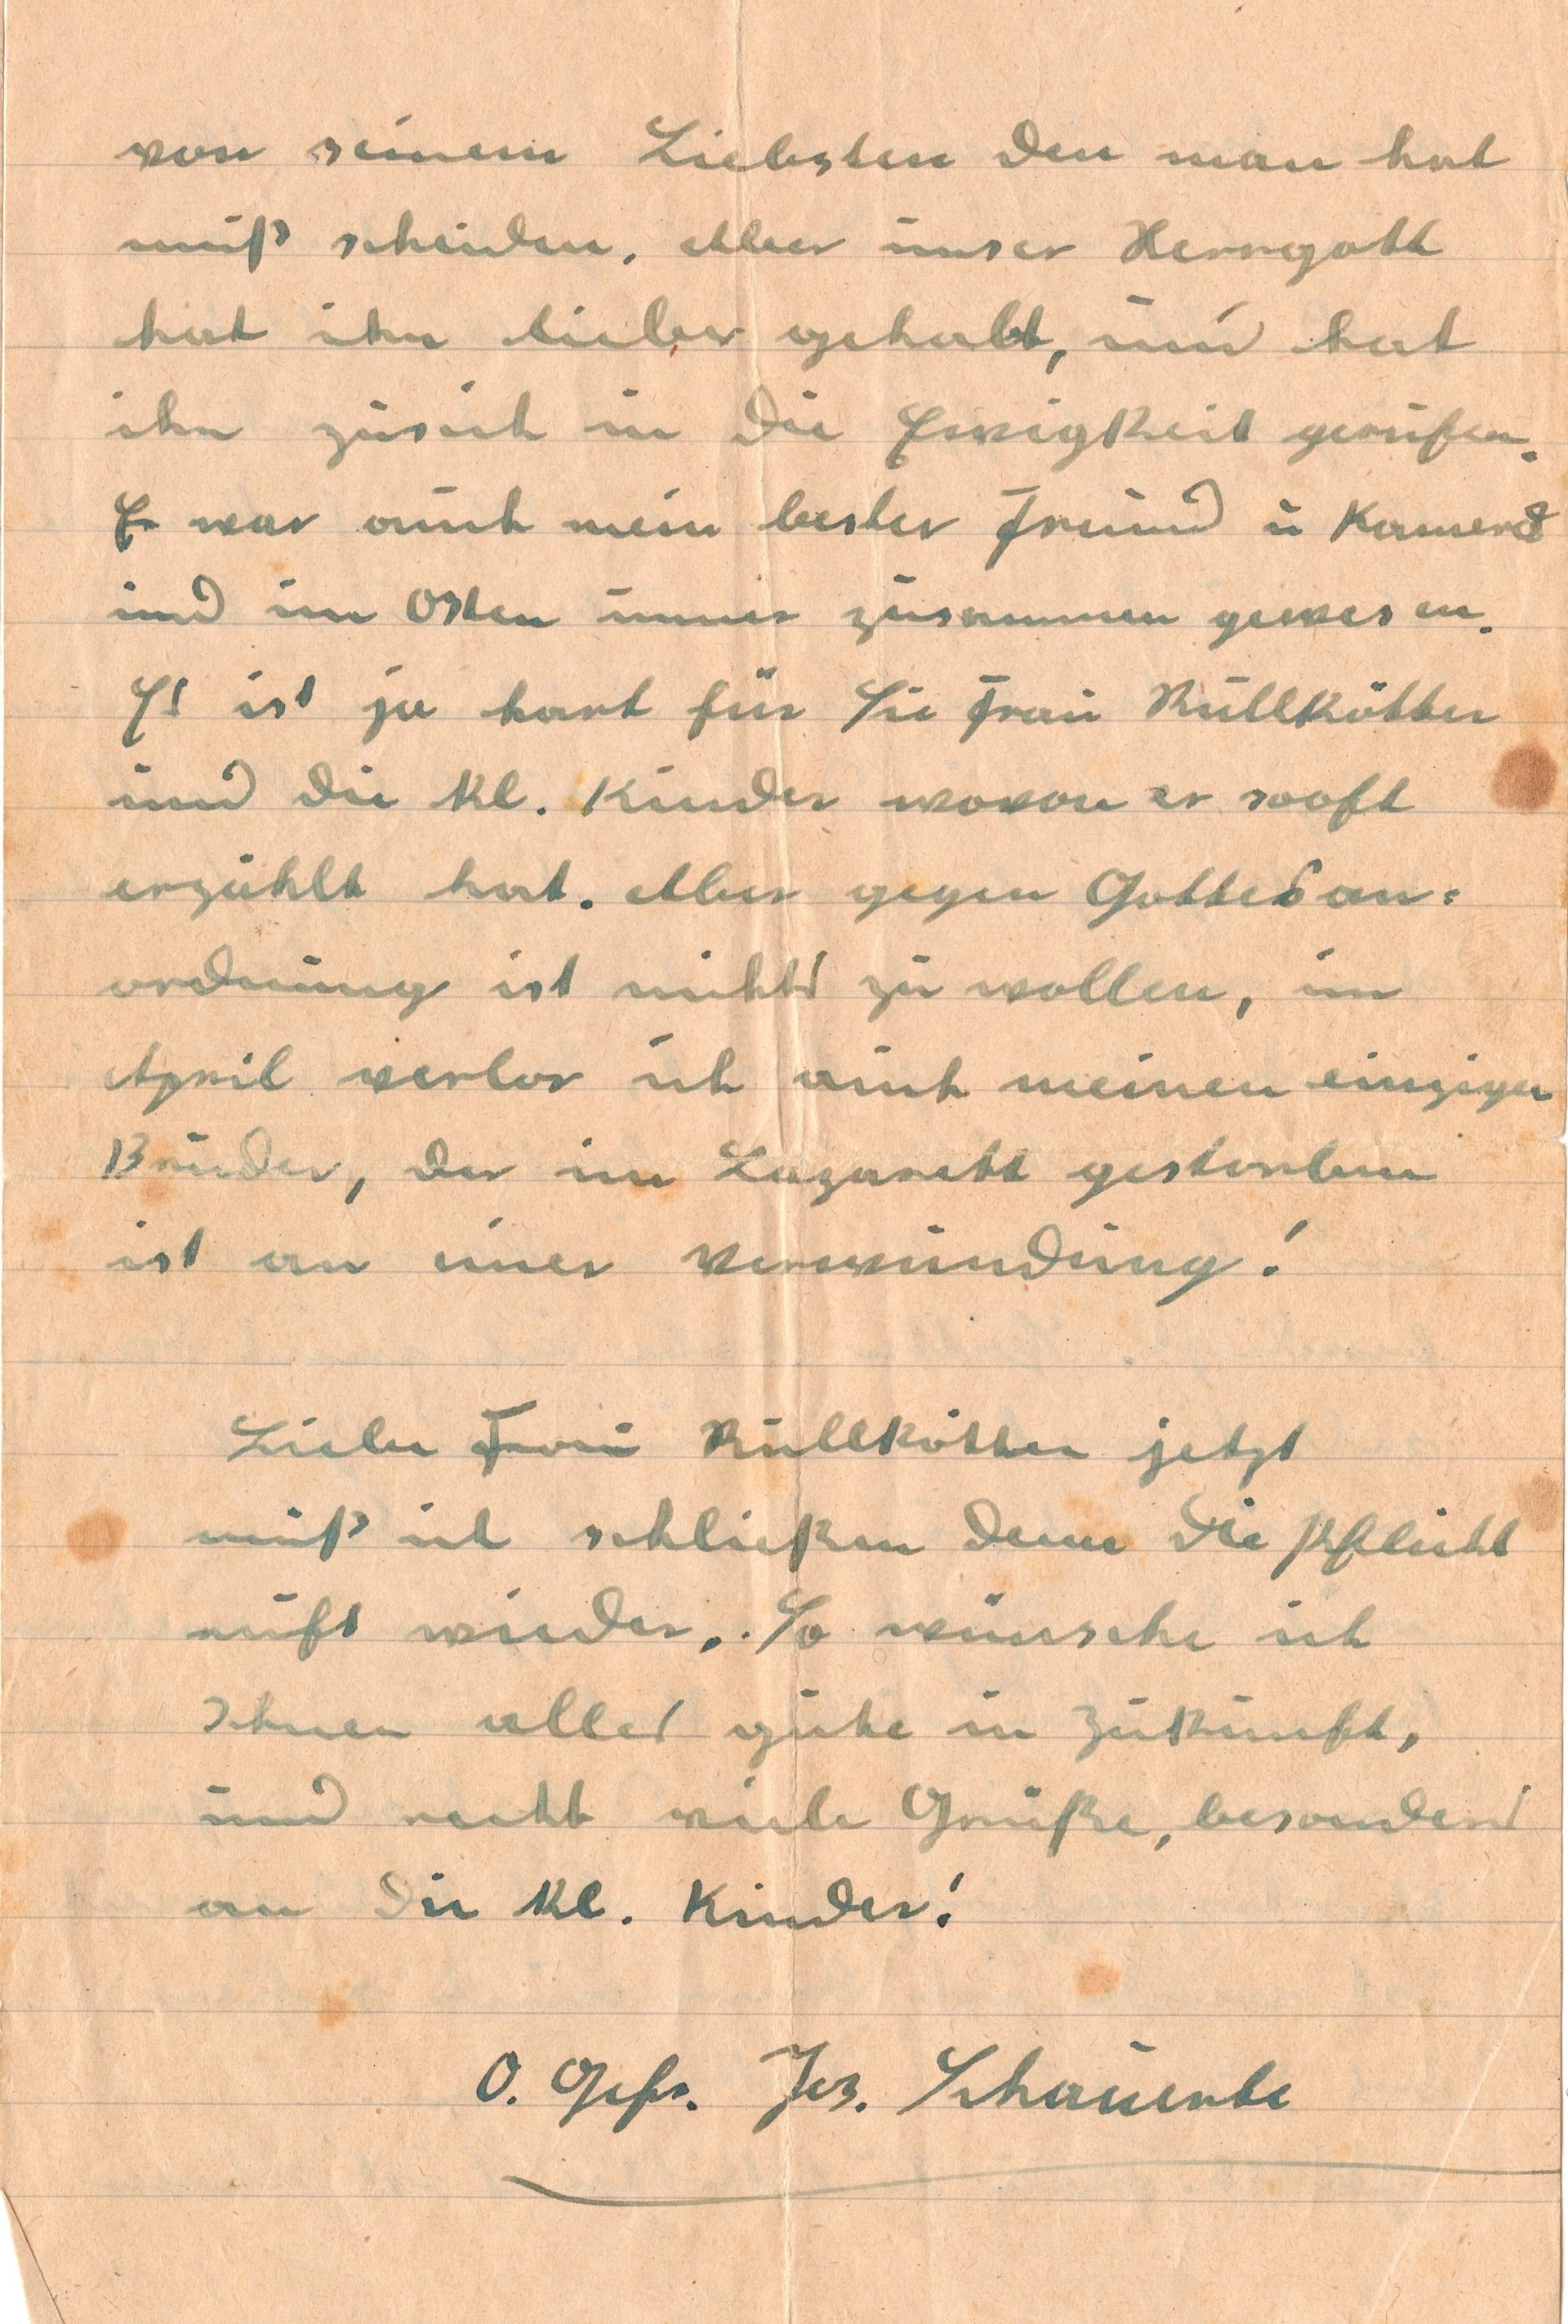 von seinem Liebsten den man hat
muß scheiden. Aber unser Herrgott
hat ihn lieber gehabt, und hat
ihn zusich in die Ewigkeit gerufen.
Er war auch mein bester Freund u Kamerd
und im Osten immer zusammen gewesen.
Es ist ja hart für Sie Frau Rüllkötter
und die kl. Kinder wovon er sooft
erzählt hat. Aber gegen Gottesan-
ordnung ist nichts zu wollen, im
April verlor ich auch meinen einzigen
Bruder, der im Lazarett gestorben
ist an einer Verwundung!
Liebe Frau Rüllkötter jetzt
muß ich schließen denn die Pflicht
ruft wieder. So wünsche ich
Ihnen alles gute in Zukunft,
und recht viele Grüße, besonders
an die kl. Kinder!
O. Gefr. Jos. Schauerte